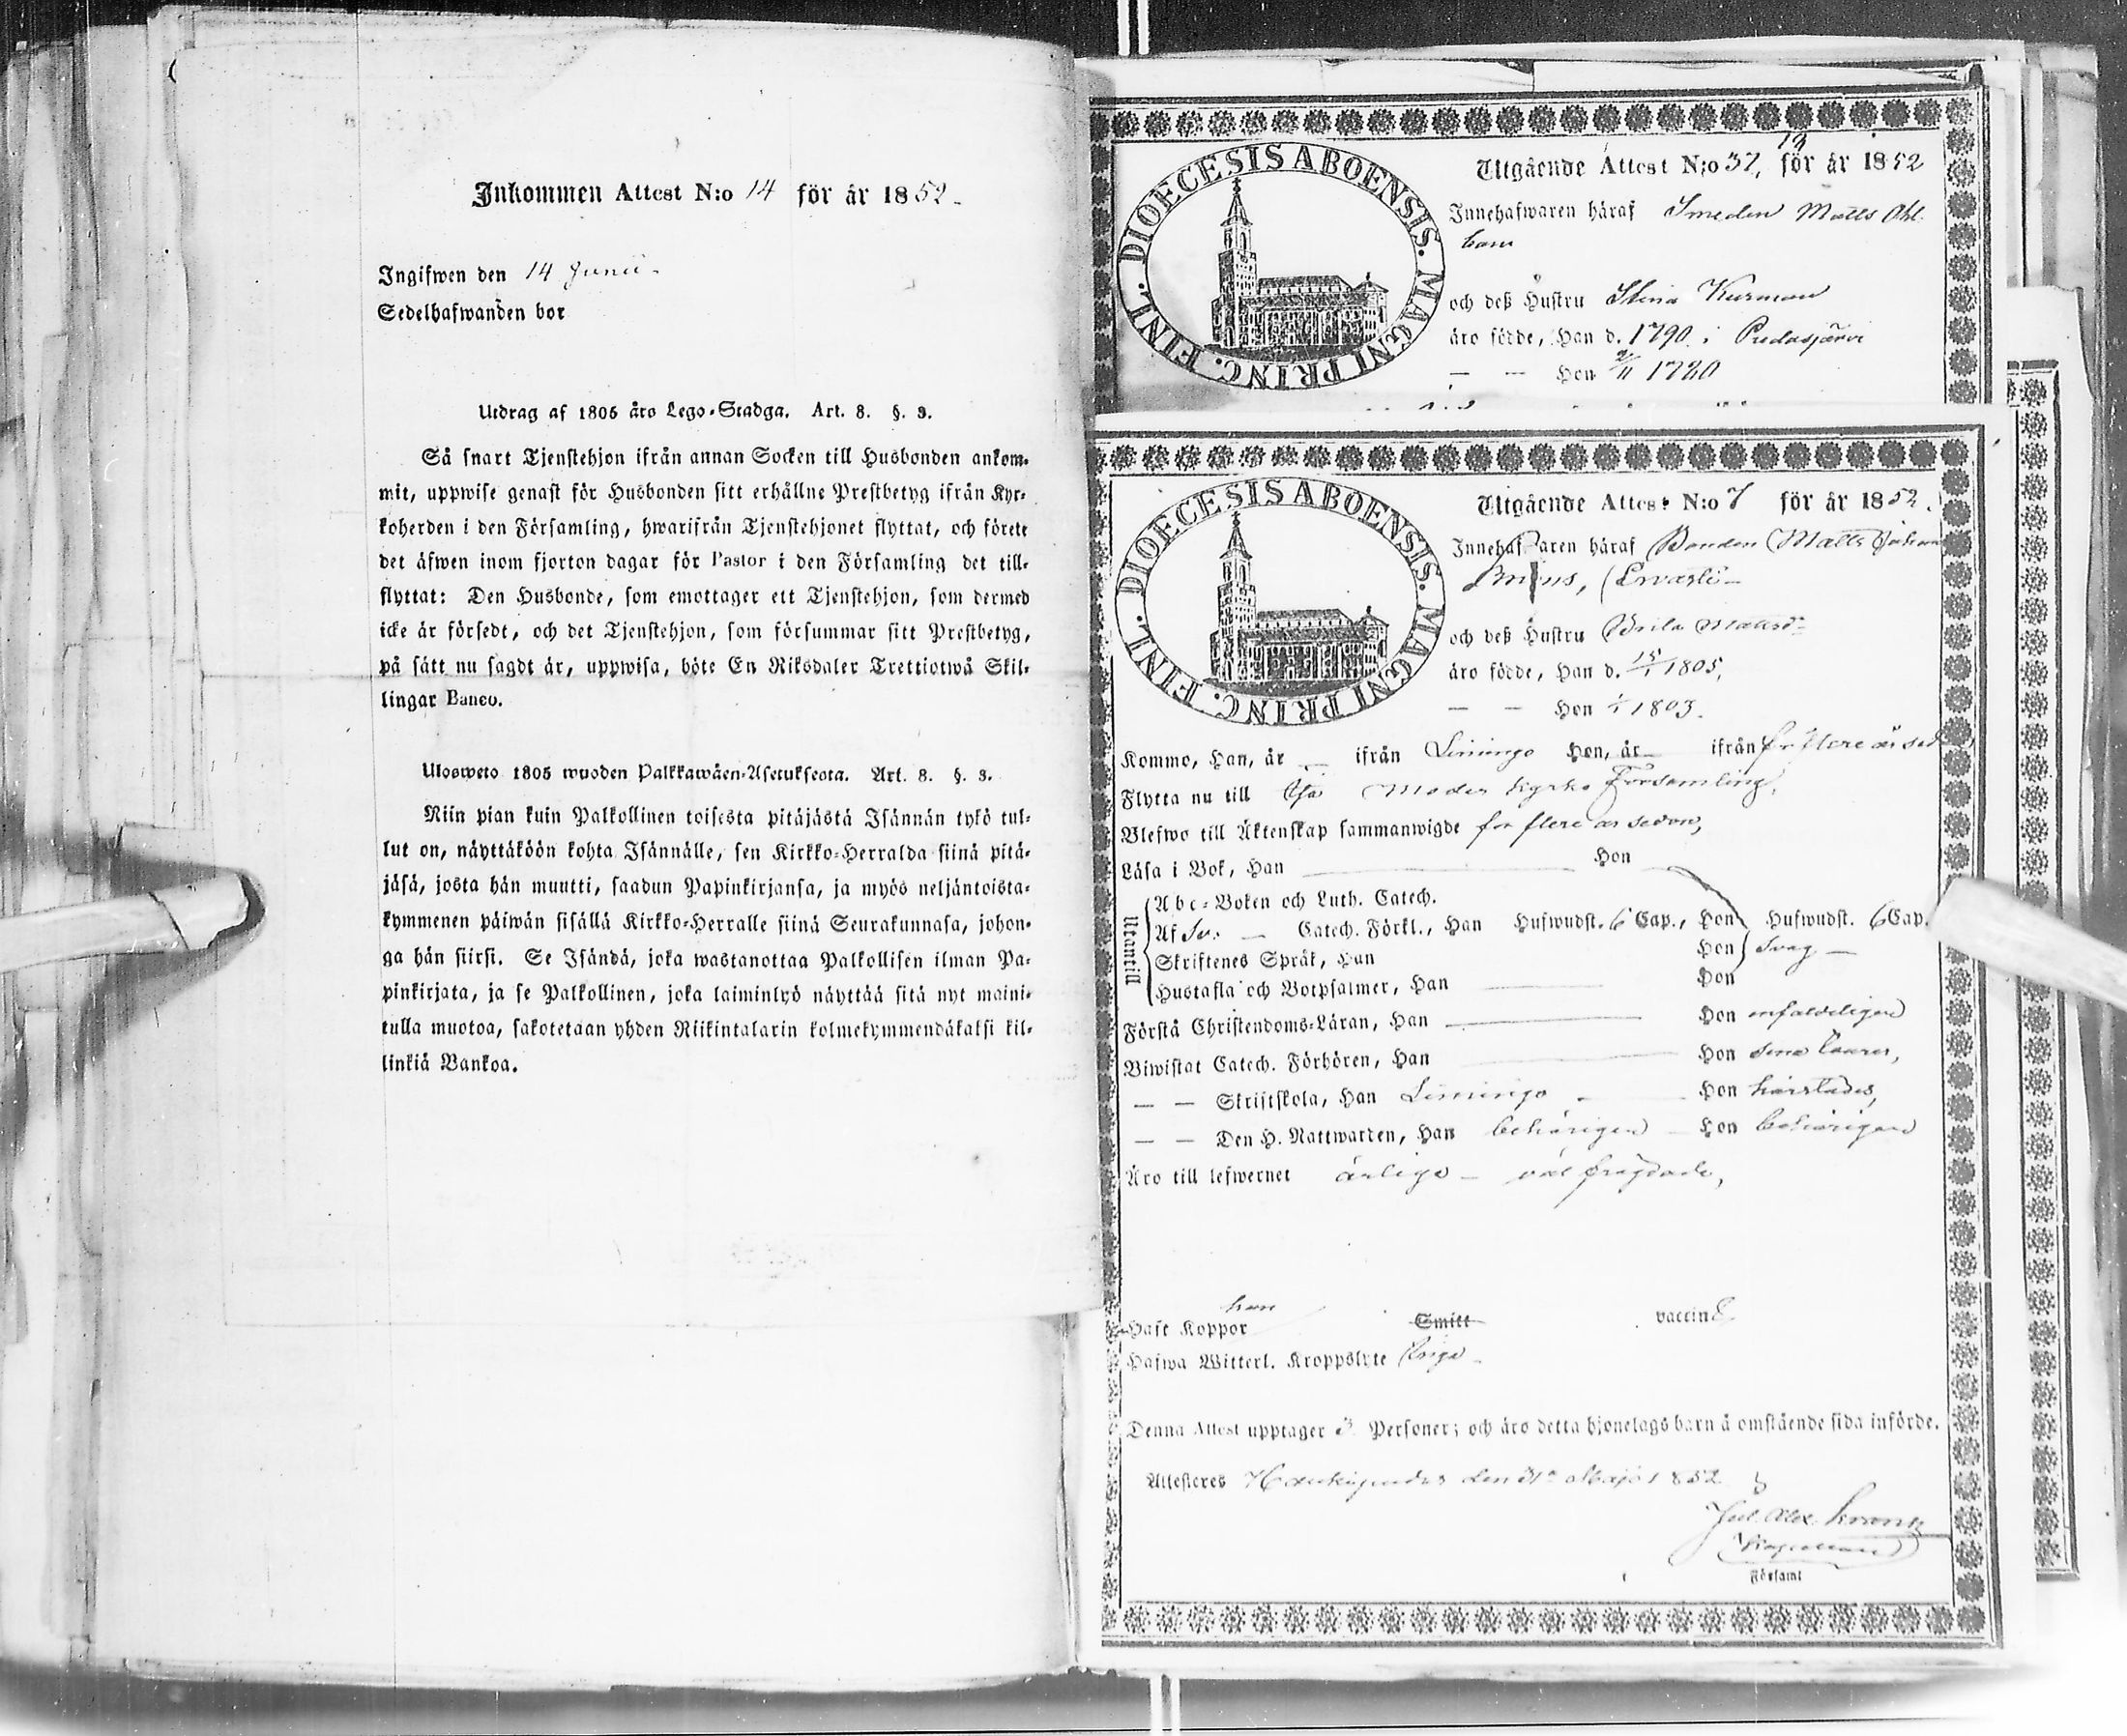 Inkommen Attest N:o 14 för år 1852.
Ingifwen den 14 Junii.
Sedelhafwanden bor
Utdrag af 1805 års Lego-Stadga. Art. 8. §. 3.
Så snart Tjenstehjon ifrån annan Socken till Husbonden ankom-
mit, uppwise genast för Husbonden sitt erhållne Prestbetyg ifrån Kyr-
koherden i den Församling, hwarifrån Tjenstehjonet flyttat, och förete
det äfwen inom fjorton dagar för Pastor i den Församling det till-
flyttat: Den Husbonde, som emottager ett Tjenstehjon, som dermed
icke är försedt, och det Tjenstehjon, som försummar sitt Prestbetyg,
på sätt nu sagdt är, uppwisa, böte En Riksdaler Trettiotwå Skil-
lingar Banco.
Ulosweto 1805 wuoden Palkkawäen-Asetuksesta. Art. 8. §. 3.
Niin pian kuin Palkollinen toisesta pitäjästä Isännän tykö tul-
lut on, näyttäköön kohta Isännälle, sen Kirkko-Herralda siinä pitä-
jäsä, josta hän muutti, saadun Papinkirjansa, ja myös neljäntoista-
kymmenen päiwän sisällä Kirkko-Herralle siinä Seurakunnasa, johon-
ga hän siirsi. Se Isändä, joka wastanottaa Palkollisen ilman Pa-
pinkirjata, ja se Palkollinen, joka laiminlyö näyttää sitä nyt maini-
tulla muotoa, sakotetaan yhden Riikintalarin kolmekymmendäkaksi kil-
linkiä Bankoa.
DIOECESIS ABOENSIS. MAGNI PRINC. FINL.
Utgående Attest N:o 37, 19 för år 1852
Innehafwaren häraf Smeden Matts Ahl-
bom
och deß Hustru Stina Kurman
äro födde, Han d. 1790. i Pudasjärvi
— — Hon 2/11 1780
DIOECESIS ABOENSIS. MAGNI PRINC. FINL.
Utgående Attest N:o 7 för år 1852.
Innehafwaren häraf Bonden Matts Johan
Ervasti
och deß Hustru Brita Mattsd:
äro födde, Han d. 15/1 1805,
— — Hon 1803.
Kommo, Han, år — ifrån Limingo Hon, år — ifrån för flere år sed
Flytta nu till Ijo Moder kyrko Församling,
Blefwo till Äktenskap sammanwigde för flere år sedan,
Läsa i Bok, Han Hon
Utantill
Abc-Boken och Luth. Catech.
Af Sv. — Catech. Förkl., Han Hufwudst. 6 Cap., Hon Hufwudst. 6 Cap.
Skriftenes Språk, Han Hon Svag —
Hustafla och Botpsalmer, Han Hon
Förstå Christendoms-Läran, Han Hon enfaldeligen
Biwistat Catech. Förhören, Han Hon sina läsrar,
— — Skriftskola, Han Limingo — Hon härstädes,
— — Den H. Nattwarden, Han behörigen — Hon behörigen
Äro till lefwernet ärliga — väl frägdade,
Haft Koppor han Smitt vaccin
Hafwa Witterl. Kroppslyte Inga —
Denna Attest upptager 3 Personer; och äro detta hjonelags barn å omstående sida införde.
Attesteres Haukipudas den 31a Maji 1852
Jul. Alex. Krank
Kapellan
Församl